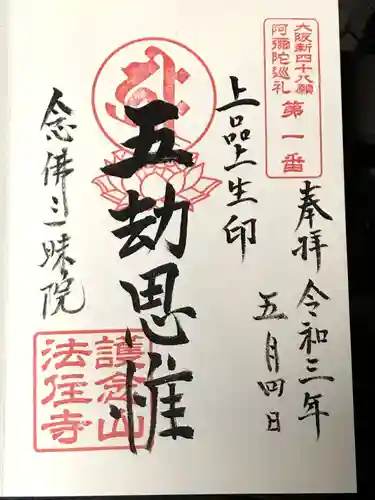 大阪新四十八願
阿彌陀巡礼
第一番
奉拝
令和三年
五月四日
上品上生印
五劫思惟
念佛三昧院
護念山
法住寺